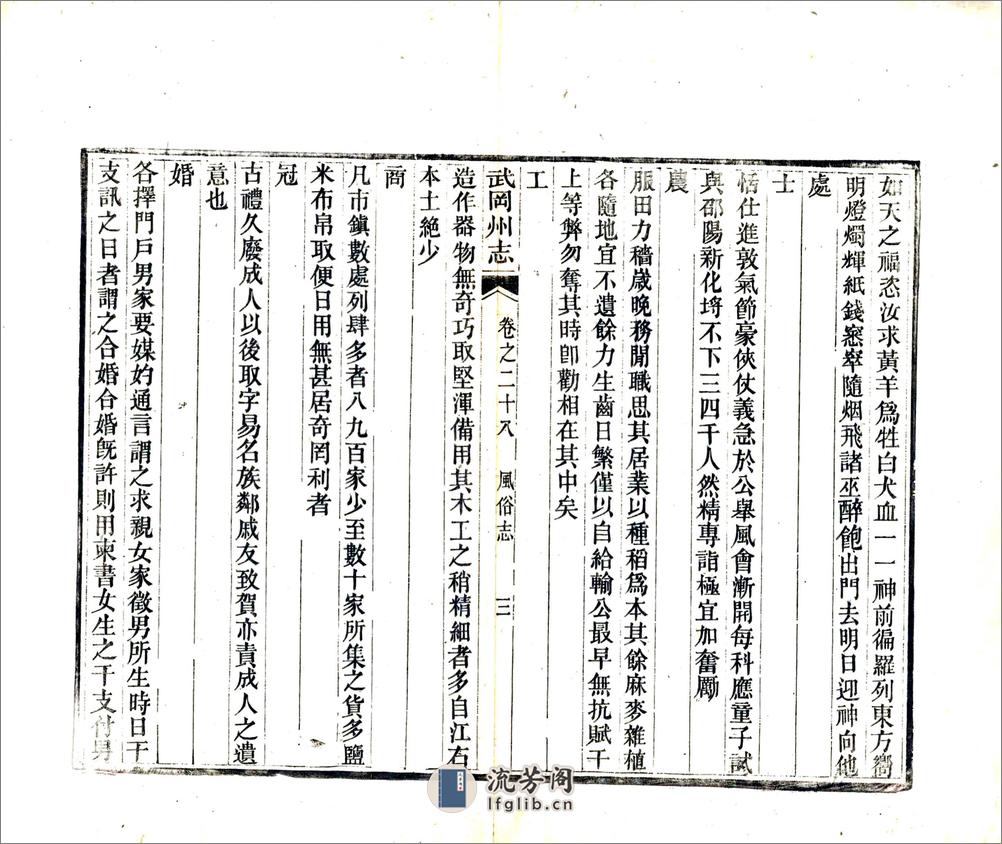 如天之福恣汝求黃羊爲牲白犬血一一神前徧羅列東方嚮
明燈燭輝紙錢窸窣隨烟飛諸巫醉飽出門去明日迎神向他
處
士
恬仕進敦氣節豪俠仗義急於公舉風會漸開每科應童子試
與邵陽新化埒不下三四千人然精專詣極宜加奮勵
農
服田力穡歲晚務閒職思其居業以種稻爲本其餘麻麥雜植
各隨地宜不遺餘力生齒日繁僅以自給輸公最早無抗賦干
上等弊勿奪其時卽勸相在其中矣
工
武岡州志
卷之二十八
風俗志
三
造作器物無奇巧取堅渾備用其木工之稍精細者多自江右
本土絶少
商
凡市鎮數處列肆多者八九百家少至數十家所集之貨多鹽
米布帛取便日用無甚居奇罔利者
冠
古禮久廢成人以後取字易名族鄰戚友致賀亦責成人之遺
意也
婚
各擇門戶男家要媒妁通言謂之求親女家徵男所生時日干
支訊之日者謂之合婚合婚旣許則用柬書女生之干支付男
流芳阁
lfglib.cn